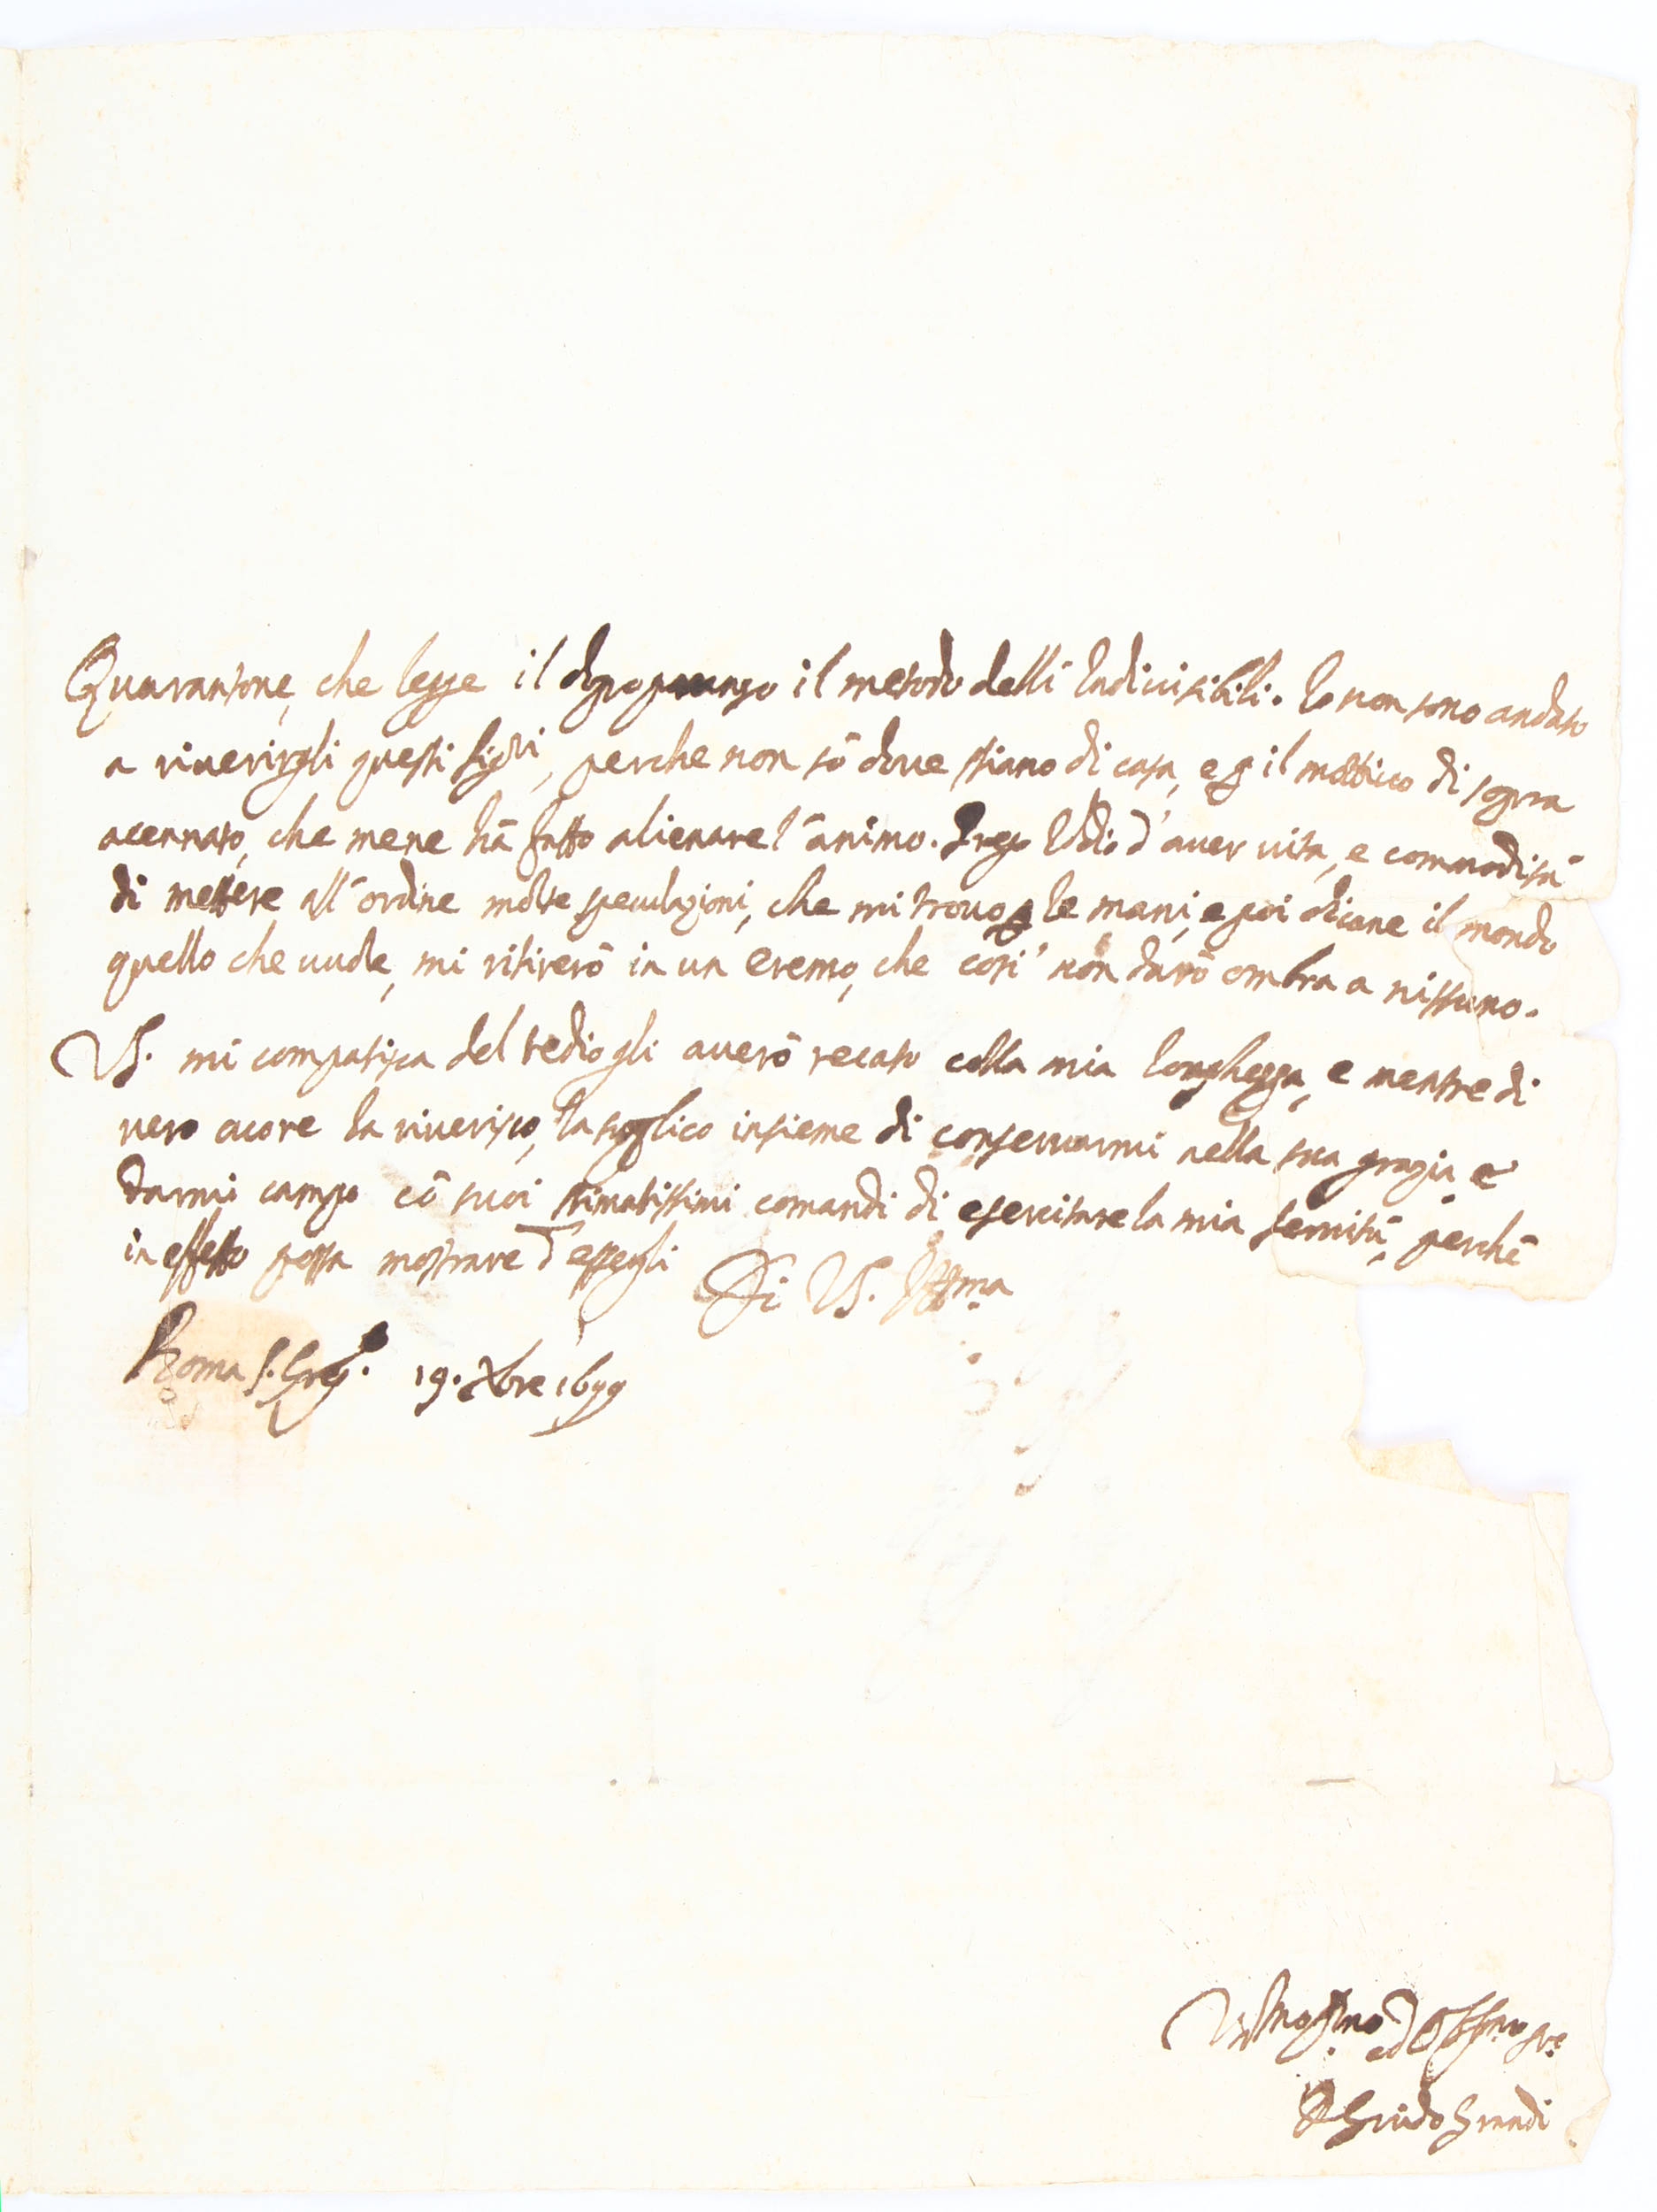 Quarantone, che legge il dopo pranzo il metodo delli Indiuisibili. Io non sono andato
a riuerirgli questi sigri, perche non sò doue stiano di casa, e p il mottiuo di sopra
acennato, che mene hà fatto alienare l'animo. Prego Iddio d'auer uita, e commodità
di mettere all'ordine molte speculazioni, che mi trouo p le mani, e poi dicane il mondo
quello che uuole, mi ritirerò in un eremo, che così non darò ombra a nissuno.
VS. mi compatisca del tedio gli auerò recato colla mia longhezza, e mentre di
uero cuore la riuerisco, la supplico insieme di conseruarmi nella sua grazia e
darmi campo cō suoi stimatissimi comandi di esercitare la mia seruitù, perchè
in effetto possa mostrare d'essergli Di VS. Illma
Roma S. Greg.o 19. Xbre 1699
Vmo ed Obbmo sre
D Guido Grandi